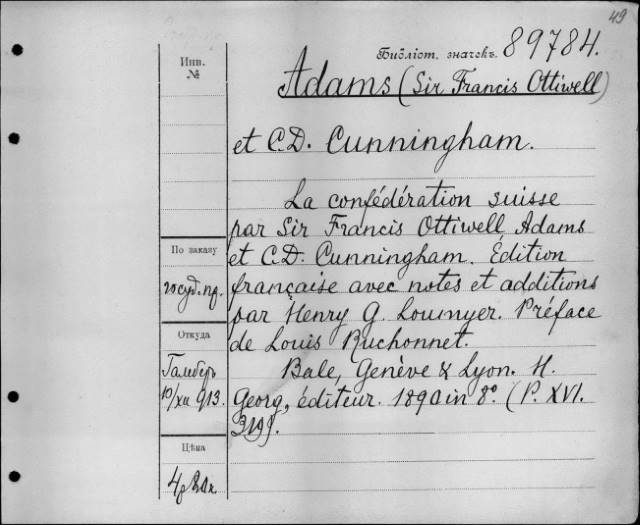 49
Библіот. значекъ. 89784.
Инв.
№
Adams (Sir Francis Ottiwell)
et C.D. Cunningham.
La confédération suisse
par Sir Francis Ottiwell Adams
et C.D. Cunningham. Édition
française avec notes et additions
par Henry G. Loumyer. Préface
de Louis Ruchonnet.
Bale, Genève & Lyon. H.
Georg, éditeur. 1890 in 8º. (P. XVI.
319).
По заказу
госуд. пр.
Откуда
10/XII 913.
Цѣна